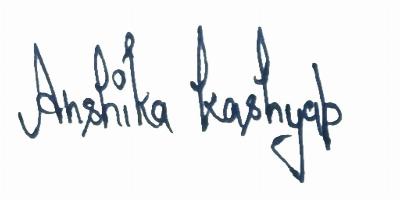 Anshika Kashyap